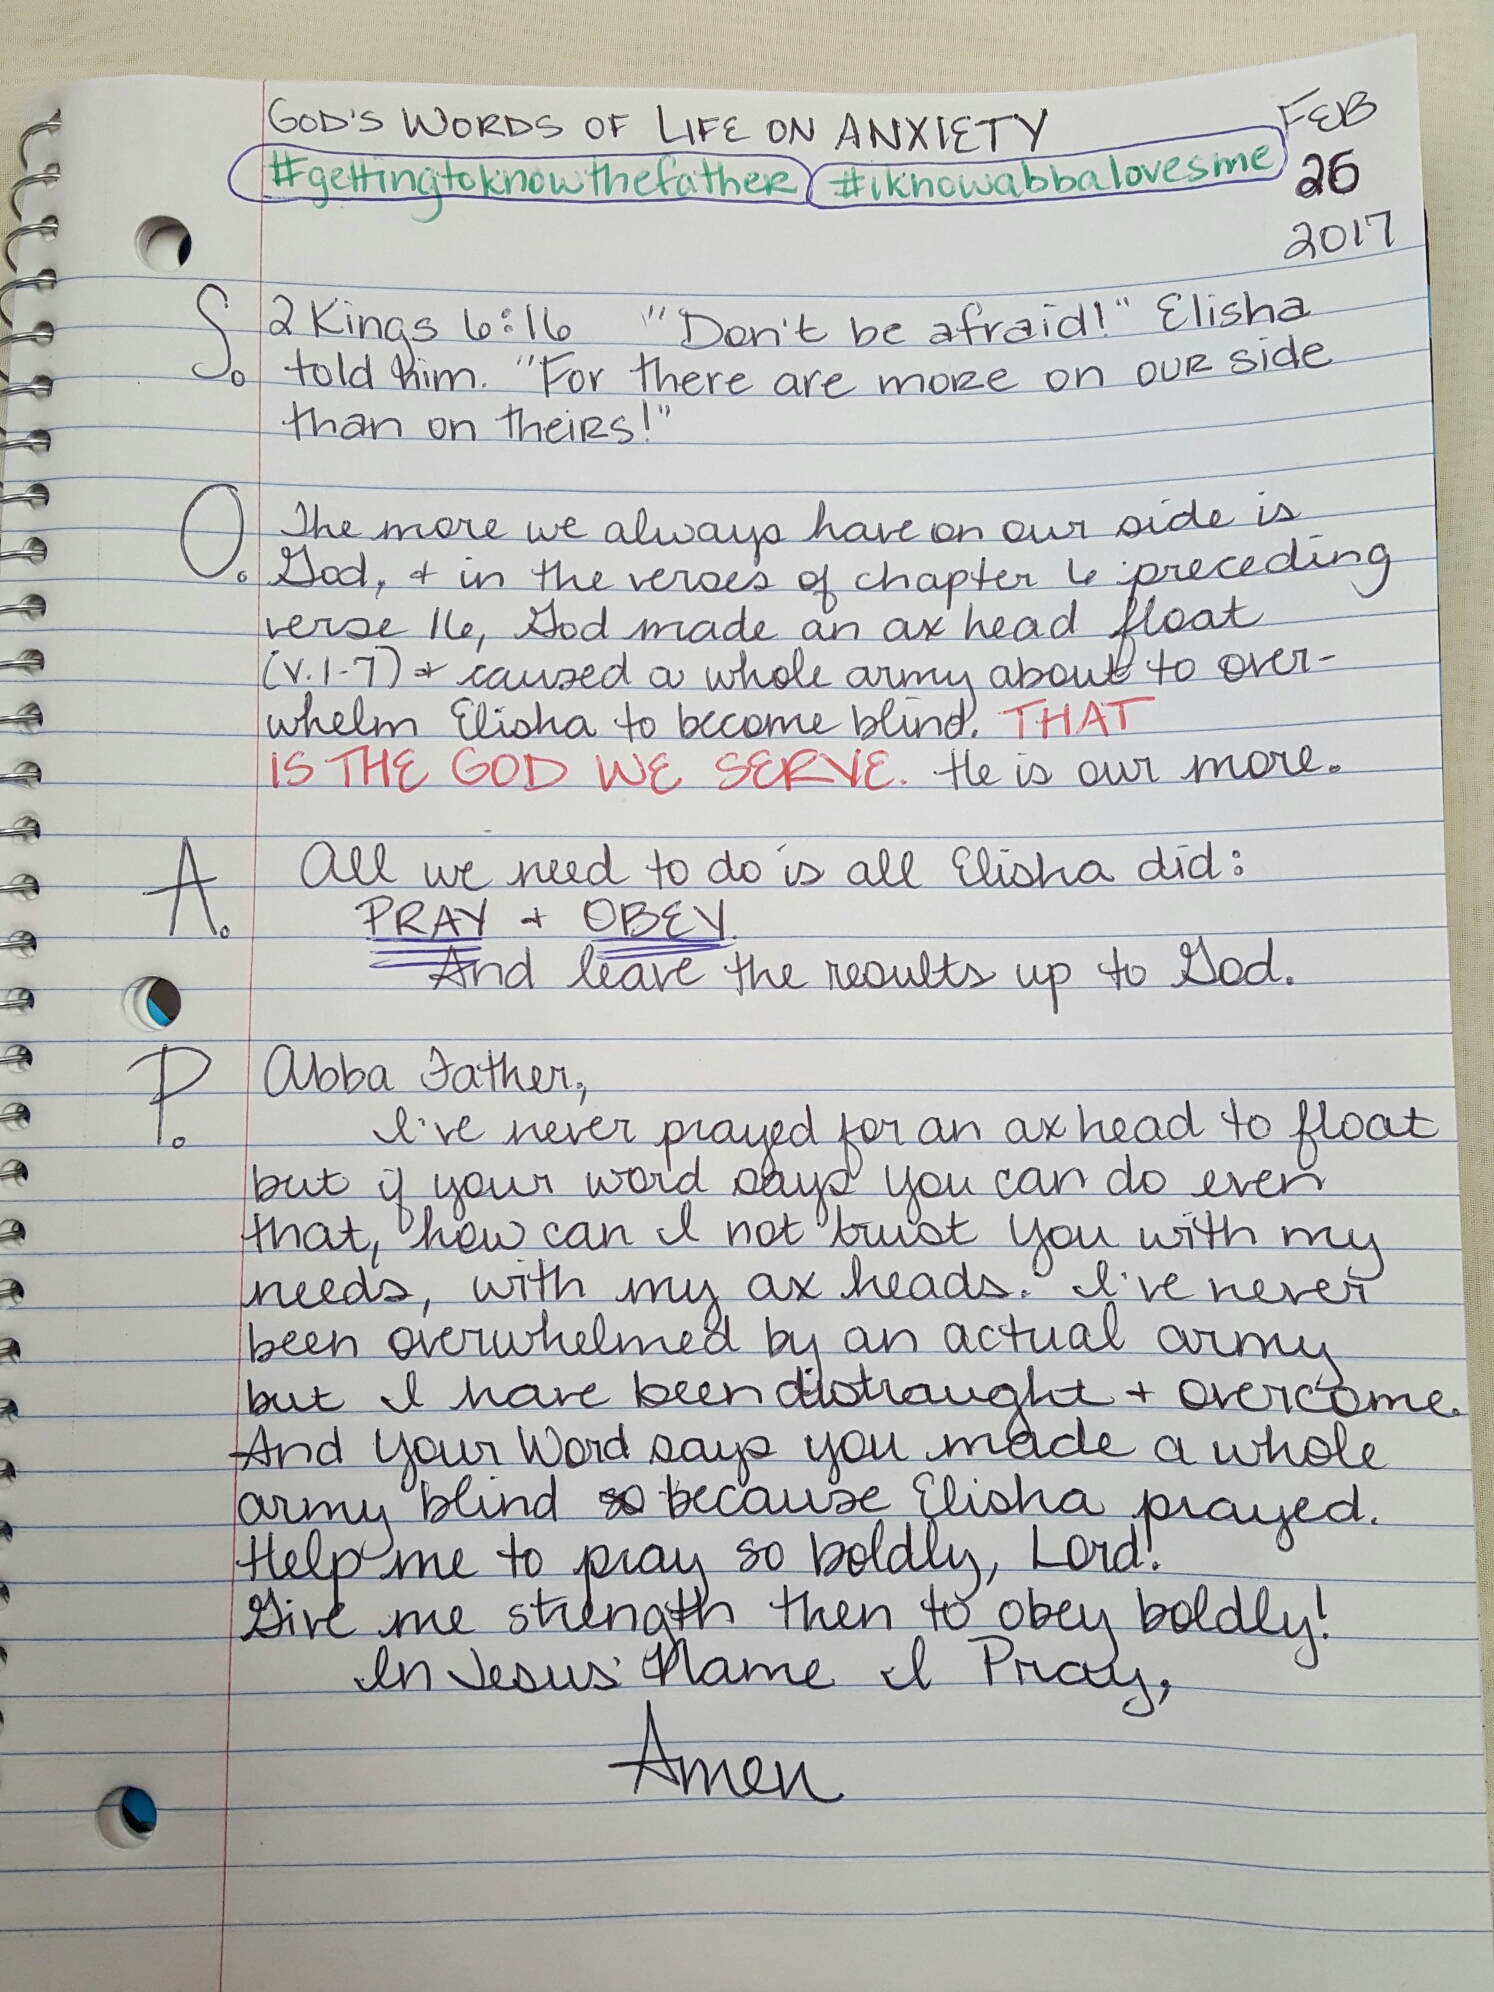 GOD'S WORDS OF LIFE ON ANXIETY
#gettingtoknowthefather #iknowabbalovesme
FEB
26
2017
S. 2 Kings 6:16 "Don't be afraid!" Elisha
told him. "For there are more on our side
than on theirs!"
O. The more we always have on our side is
God, + in the verses of chapter 6 preceding
verse 16, God made an ax head float
(v. 1-7) + caused a whole army about to over-
whelm Elisha to become blind. THAT
IS THE GOD WE SERVE. He is our more.
A. All we need to do is all Elisha did:
PRAY + OBEY.
And leave the results up to God.
P. Abba Father,
I've never prayed for an ax head to float
but if your word says you can do even
that, how can I not trust You with my
needs, with my ax heads. I've never
been overwhelmed by an actual army
but I have been distraught + overcome.
And Your Word says you made a whole
army blind so because Elisha prayed.
Help me to pray so boldly, Lord!
Give me strength then to obey boldly!
In Jesus' Name I Pray,
Amen